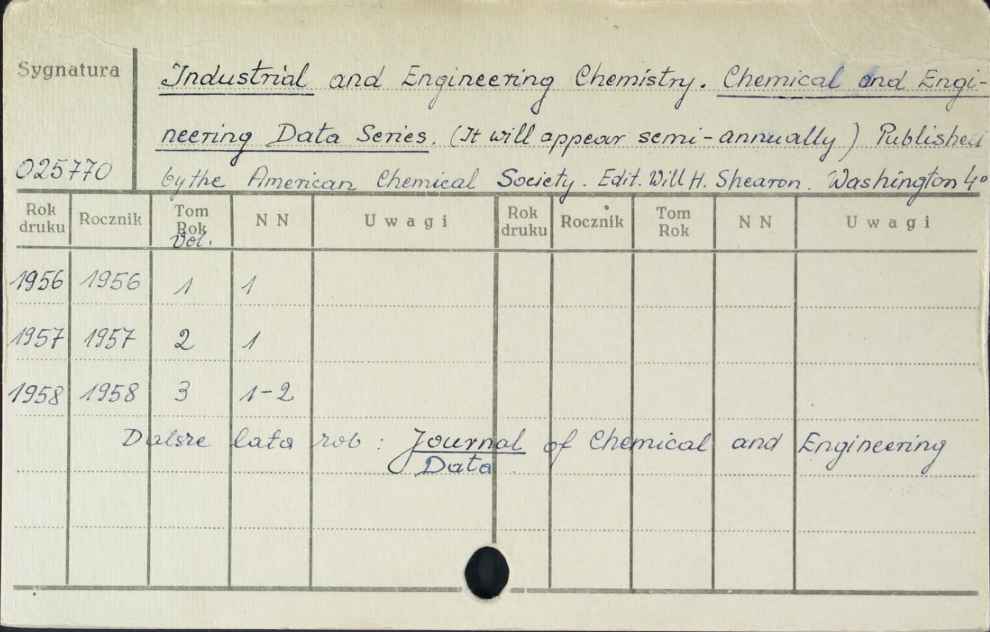 Sygnatura
Industrial and Engineering Chemistry. Chemical and Engi-
neering Data Series. (It will appear semi-annually) Published
025770
by the American Chemical Society. Edit. Will H. Shearon. Washington 4°
Rok druku Rocznik Tom Rok Vol. N N Uwagi Rok druku Rocznik Tom Rok N N Uwagi
1956 1956 1 1
1957 1957 2 1
1958 1958 3 1-2
Dalsze lata rob: Journal of Chemical and Engineering
Data.